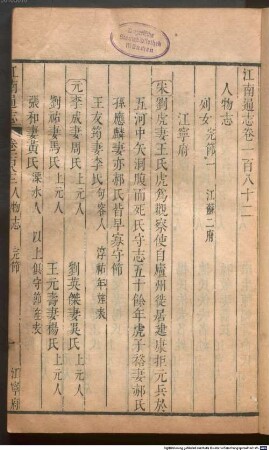 江南通志卷一百八十二
人物志
列女 完節一 江蘇二府
江寧府
宋劉虎妻王氏虎為觀察使自廣州徙居建康拒元兵於
五河中矢洞腹而死氏守志五十餘年虎子裕妻郝氏
孫應麟妻亦郝氏皆早寡守節
王友筠妻李氏句容人 淳祐年旌表
元李成妻周氏上元人 劉英傑妻吳氏上元人
劉祐妻馬氏上元人 王元壽妻楊氏上元人
張和妻黃氏溧水人 以上俱守節旌表
江南通志 人物志 完節 一 江寧府